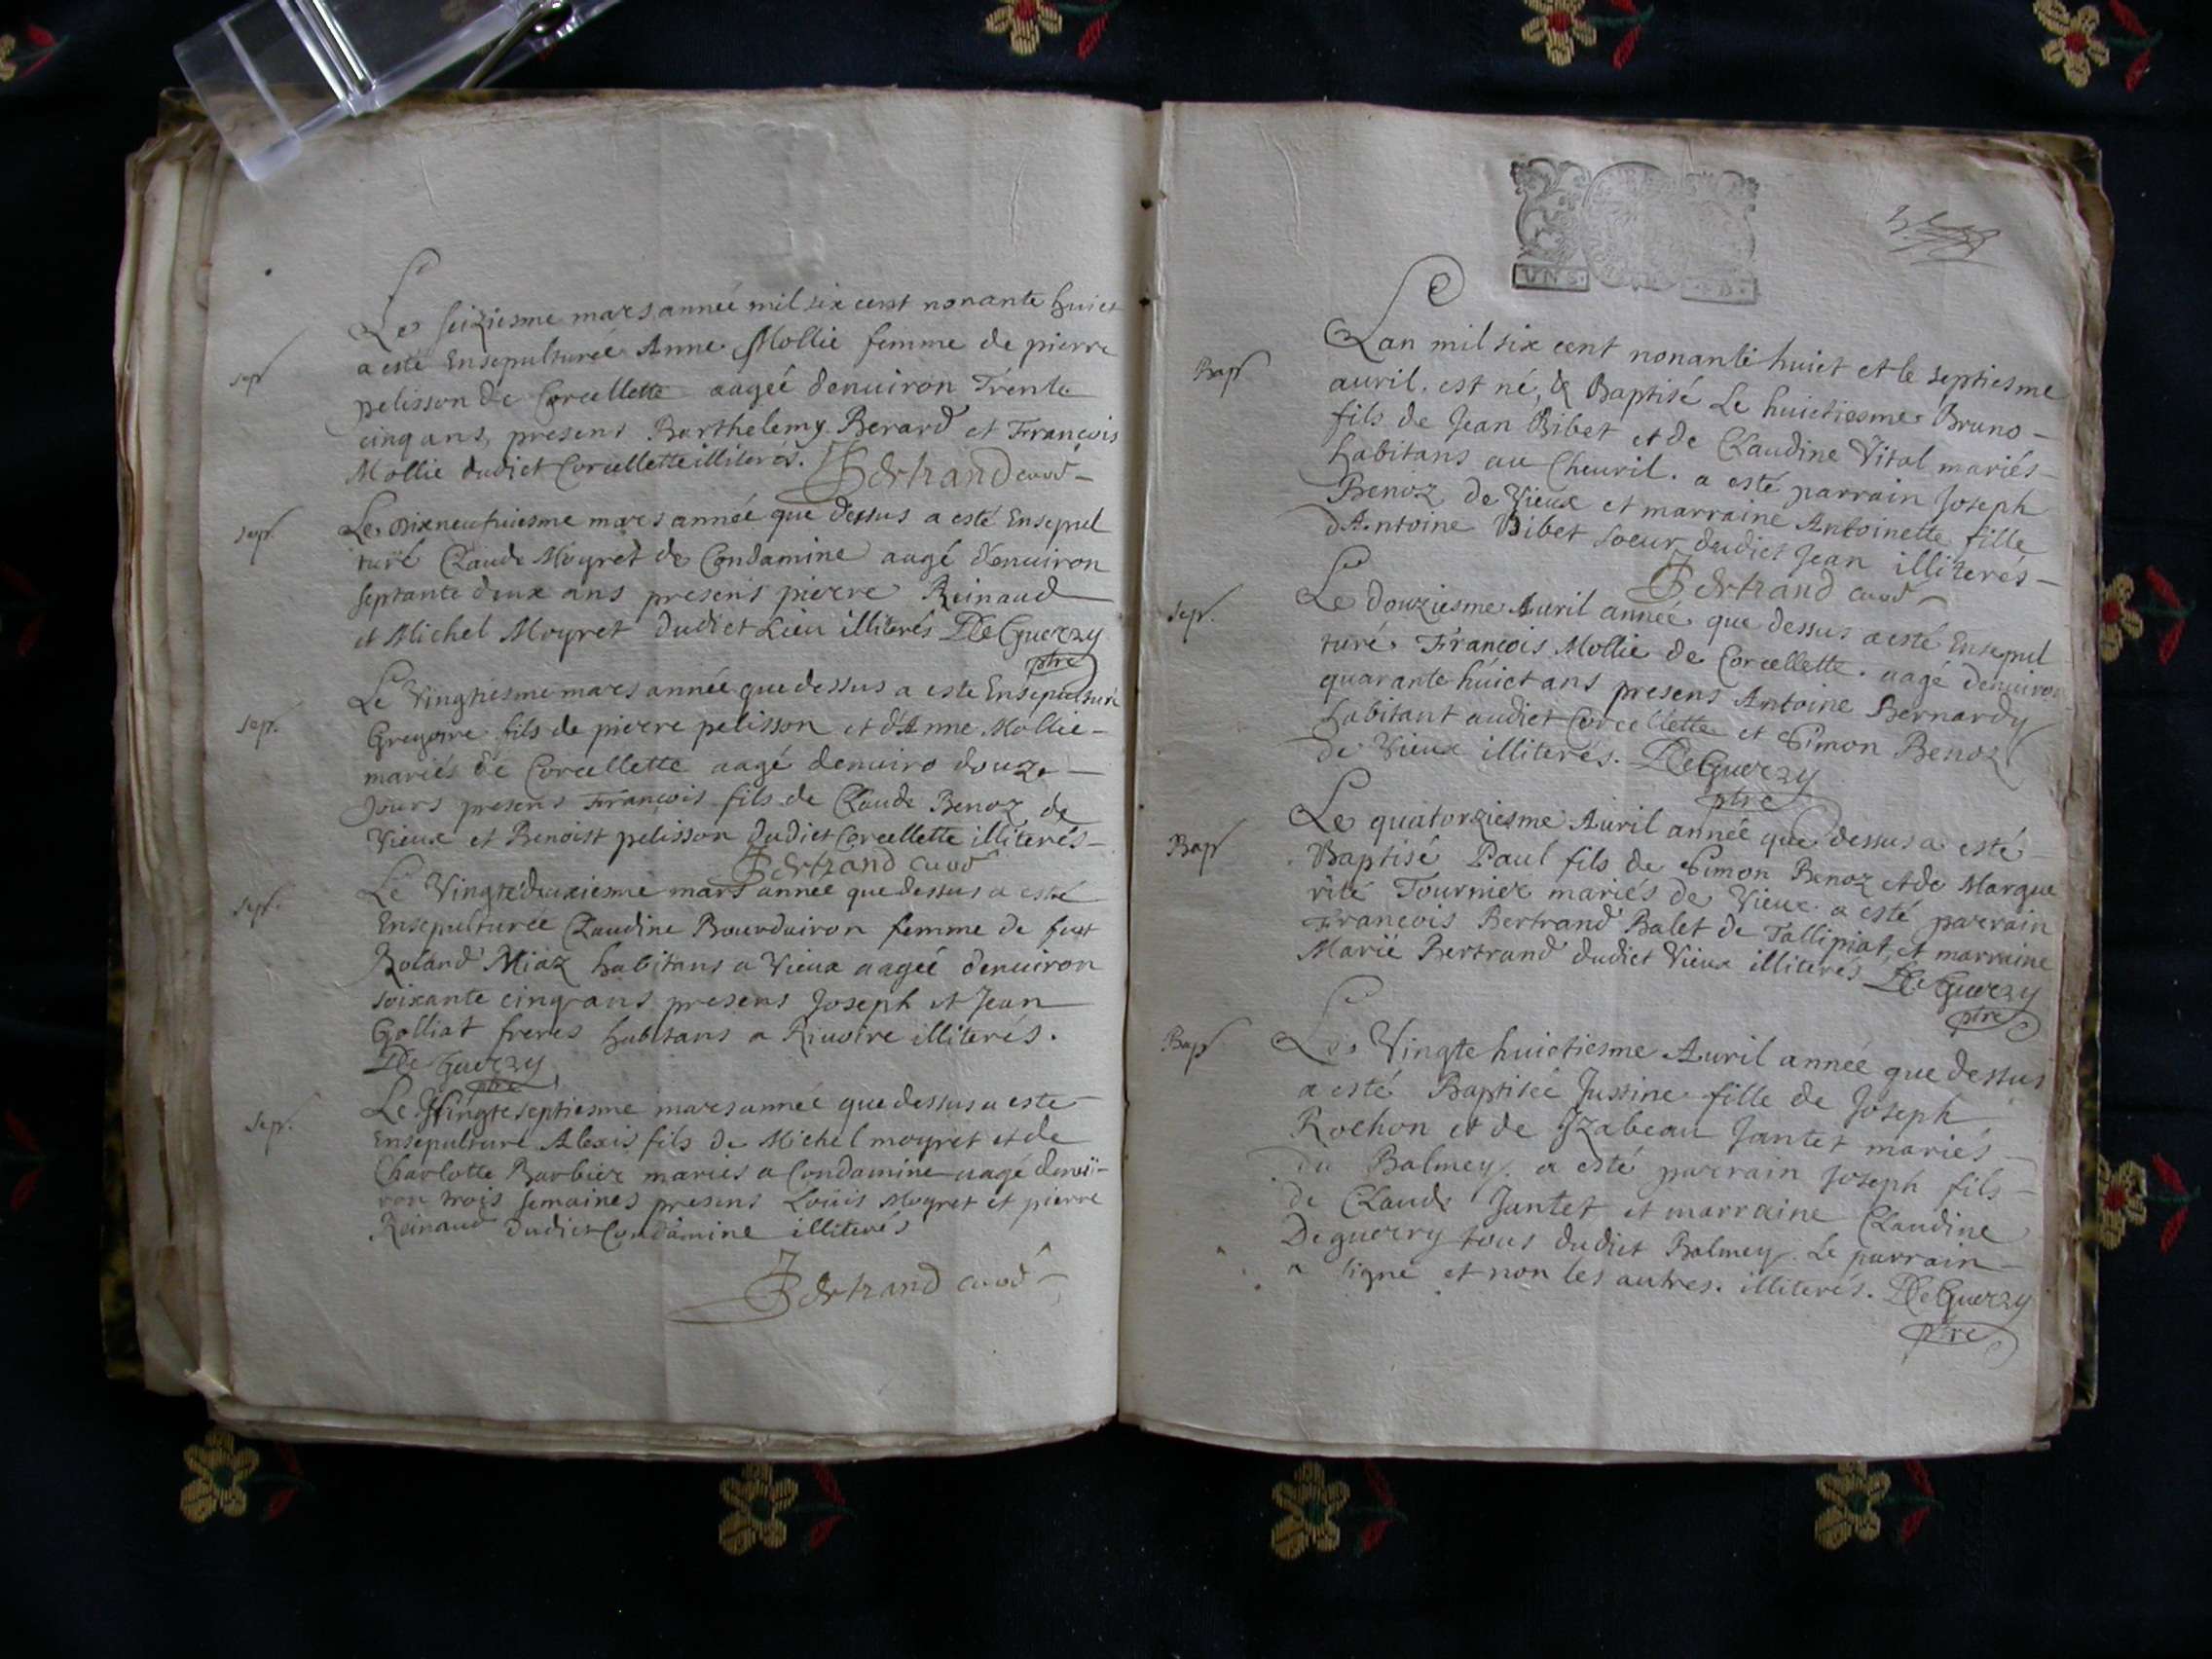 Le seiziesme mars année mil six cent nonante huict
sep
a esté Ensepulturée Anne Mollie femme de pierre
pelisson de Corcellette aagéé denuiron Trente
cinq ans, presens Barthelemy Berard et François
Mollie dudict Corcellette illiterés. Bertrand curé
sep.
Le dixneufuiesme mars année que dessus a esté Ensepul
turé Claude Moyret de Condamine aagé denuiron
septante deux ans presens pierre Reinaud
et Michel Moyret dudict Lieu illiterés DeGuerry
ptre
sep.
Le Vingtiesme mars année que dessus a este Ensepulturé
Gregoire fils de pierre pelisson et d'Anne Mollie
mariés de Corcellette aagé denuiro douze
Jours presens François fils de Claude Benoz de
Vieux et Benoist pelisson dudict Corcellette illiterés
Bertrand curé
sep.
Le Vingtedeuxiesme mars année que dessus a esté
Ensepulturée Claudine Bourduiron femme de feut
Roland Miaz habitans a Vieux aagéé denuiron
soixante cinq ans presens Joseph et Jean
Golliat freres habitans a Riuoire illiterés.
De Guerry
ptre
sep.
Le Vingteseptiesme mars année que dessus a este
Ensepulturé Alexis fils de Michel moyret et de
Charlotte Barbier mariés a Condamine aagé denui-
ron trois semaines presens Louis Moyret et pierre
Reinaud dudict Condamine illiterés
Bertrand curé
UN S.
Bap
Lan mil six cent nonante huict et le septiesme
auril. est né, & Baptisé Le huictiesme Bruno
fils de Jean Bibet et de Claudine Vital mariés
habitans au Cheuril. a esté parrain Joseph
Benoz de Vieux et marraine Antoinette fille
d'Antoine Bibet soeur dudict Jean illiterés
Bertrand curé
sep.
Le douziesme Auril année que dessus a esté Ensepul
turé François Mollie de Corcellette. aagé denuiron
quarante huict ans presens Antoine Bernardy
habitant audict Corcellette et Simon Benoz
de Vieux illiterés. DeGuerry
ptre
Bap
Le quatorziesme Auril année que dessus a esté
Baptisé Paul fils de Simon Benoz et de Margue
rite Tournier mariés de Vieux a esté parrain
François Bertrand Balet de Tallipiat, et marraine
Marie Bertrand dudict Vieux illiterés DeGuerry
ptre
Bap
Le Vingte huictiesme Auril année que dessus
a esté Baptisée Jussine fille de Joseph
Rochon et de Izabeau Jantet mariés
du Balmey. a esté parrain Joseph fils
de Claude Jantet et marraine Claudine
Deguerry tous dudict Balmey. Le parrain
a signé et non les autres. illiterés. DeGuerry
ptre